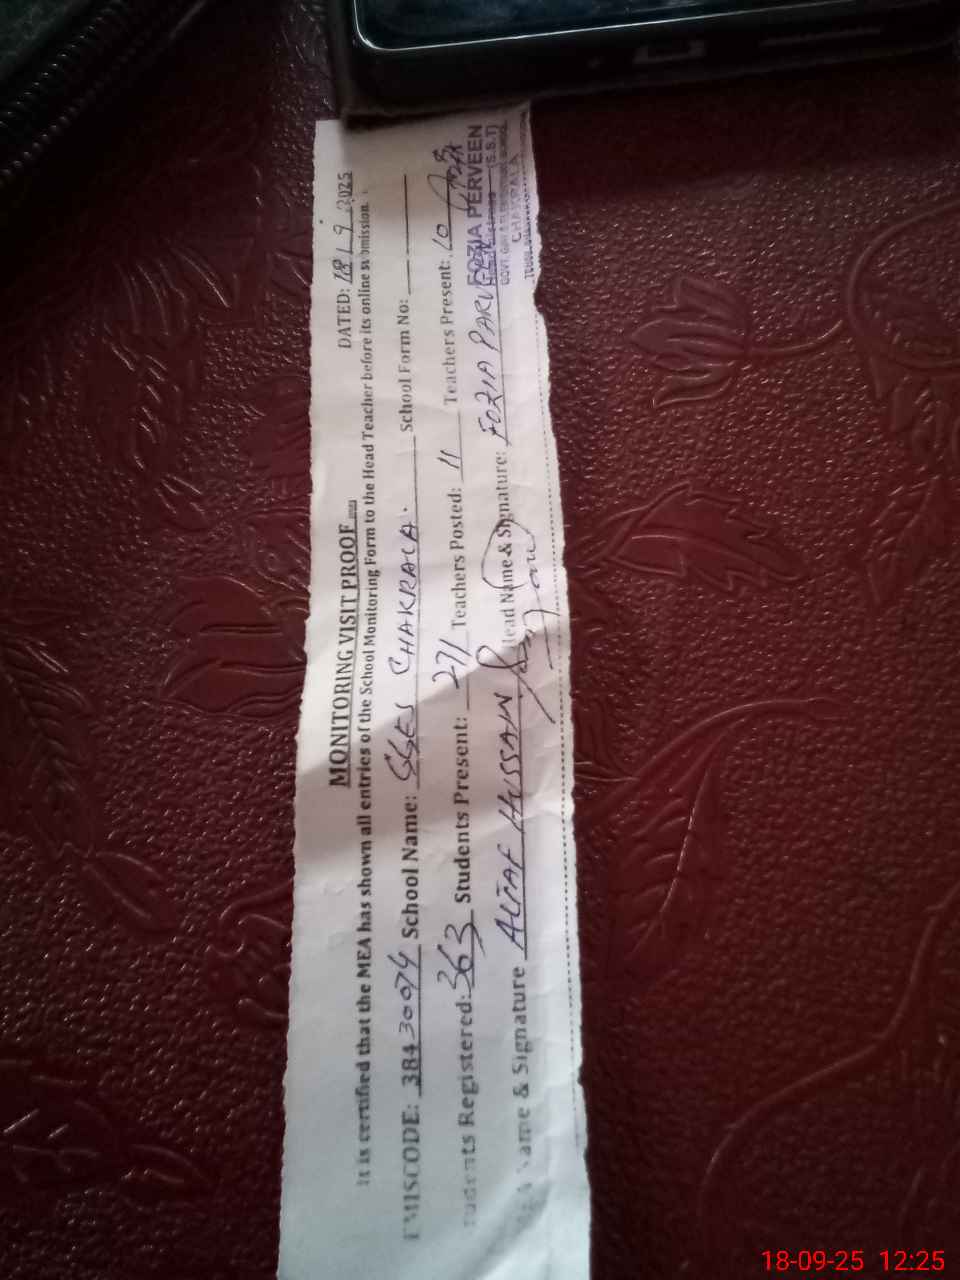 MONITORING VISIT PROOF
DATED: 18/9/2025
It is certified that the MEA has shown all entries of the School Monitoring Form to the Head Teacher before its online submission.
EMISCODE: 38430074 School Name: GGES CHAKRALA. School Form No:
Students Registered: 363 Students Present: 271 Teachers Posted: 11 Teachers Present: 10
Name & Signature ALTAF HUSSAIN Head Name & Signature: FOZIA PARVEEN
FOZIA PERVEEN
(S.S.T)
CHAKRALA
18-09-25 12:25